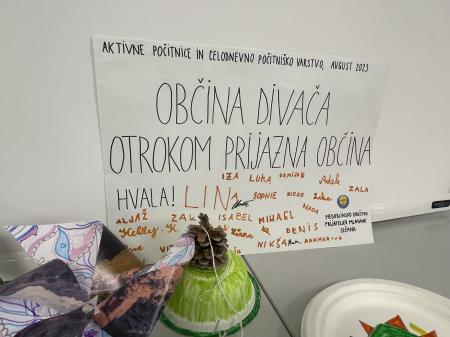 AKTIVNE POČITNICE IN CELODNEVNO POČITNIŠKO VARSTVO, AVGUST 2023
OBČINA DIVAČA
OTROKOM PRIJAZNA OBČINA
IZA LUKA DAMIJAN Adele
HVALA! LINA SOPHIE DIEGO Luka ZALA
NADA
ALJAŽ ZAK ISABEL MIHAEL
MEDOBČINSKO DRUŠTVO
PRIJATELJEV MLADINE
SEŽANA
Kelly. K. Tiana DENIS
NIKŠA ANAMARIJA